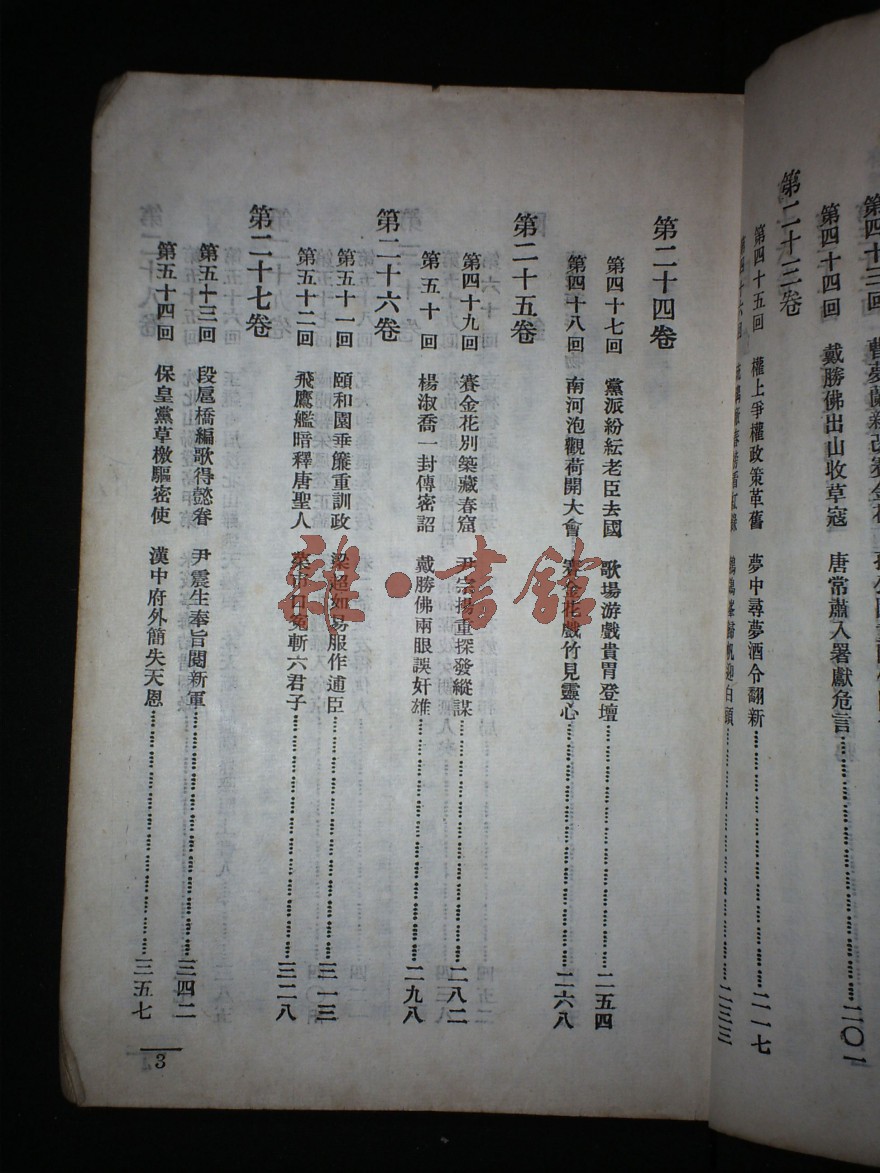 第四十三回 曹夢蘭新改賽金花
第四十四回 戴勝佛出山收草寇 唐常肅入署獻危言 二〇一
第二十三卷
第四十五回 權上爭權政策革舊 夢中尋夢酒令翻新 二一七
二三三
第二十四卷
第四十七回 黨派紛紜老臣去國 歌場游戲貴胄登壇 二五四
第四十八回 南河泡觀荷開大會 賽金花戲竹見靈心 二六八
第二十五卷
第四十九回 賽金花別築藏春窟 尹宗揚重探發縱謀 二八二
第五十回 楊淑喬一封傳密詔 戴勝佛兩眼誤奸雄 二九八
第二十六卷
第五十一回 頤和園垂簾重訓政 梁超如易服作逋臣 三一三
第五十二回 飛鷹艦暗釋唐聖人 菜市口冤斬六君子 三二八
第二十七卷
第五十三回 段扈橋編歌得懿眷 尹震生奉旨閱新軍 三四二
第五十四回 保皇黨草檄驅密使 漢中府外簡失天恩 三五七
3
雜·書館